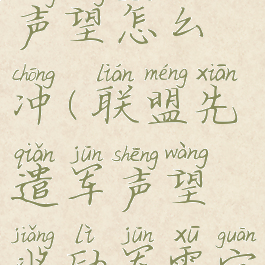 声望怎么
chōng lián méng xiān
冲(联盟先
qiǎn jūn shēng wàng
遣军声望
jiǎng lì jūn xū guān
奖励军需官